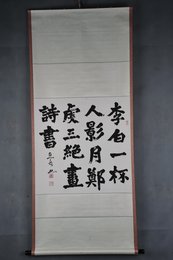 李白一杯
人影月鄭
虔三絕畫
詩書